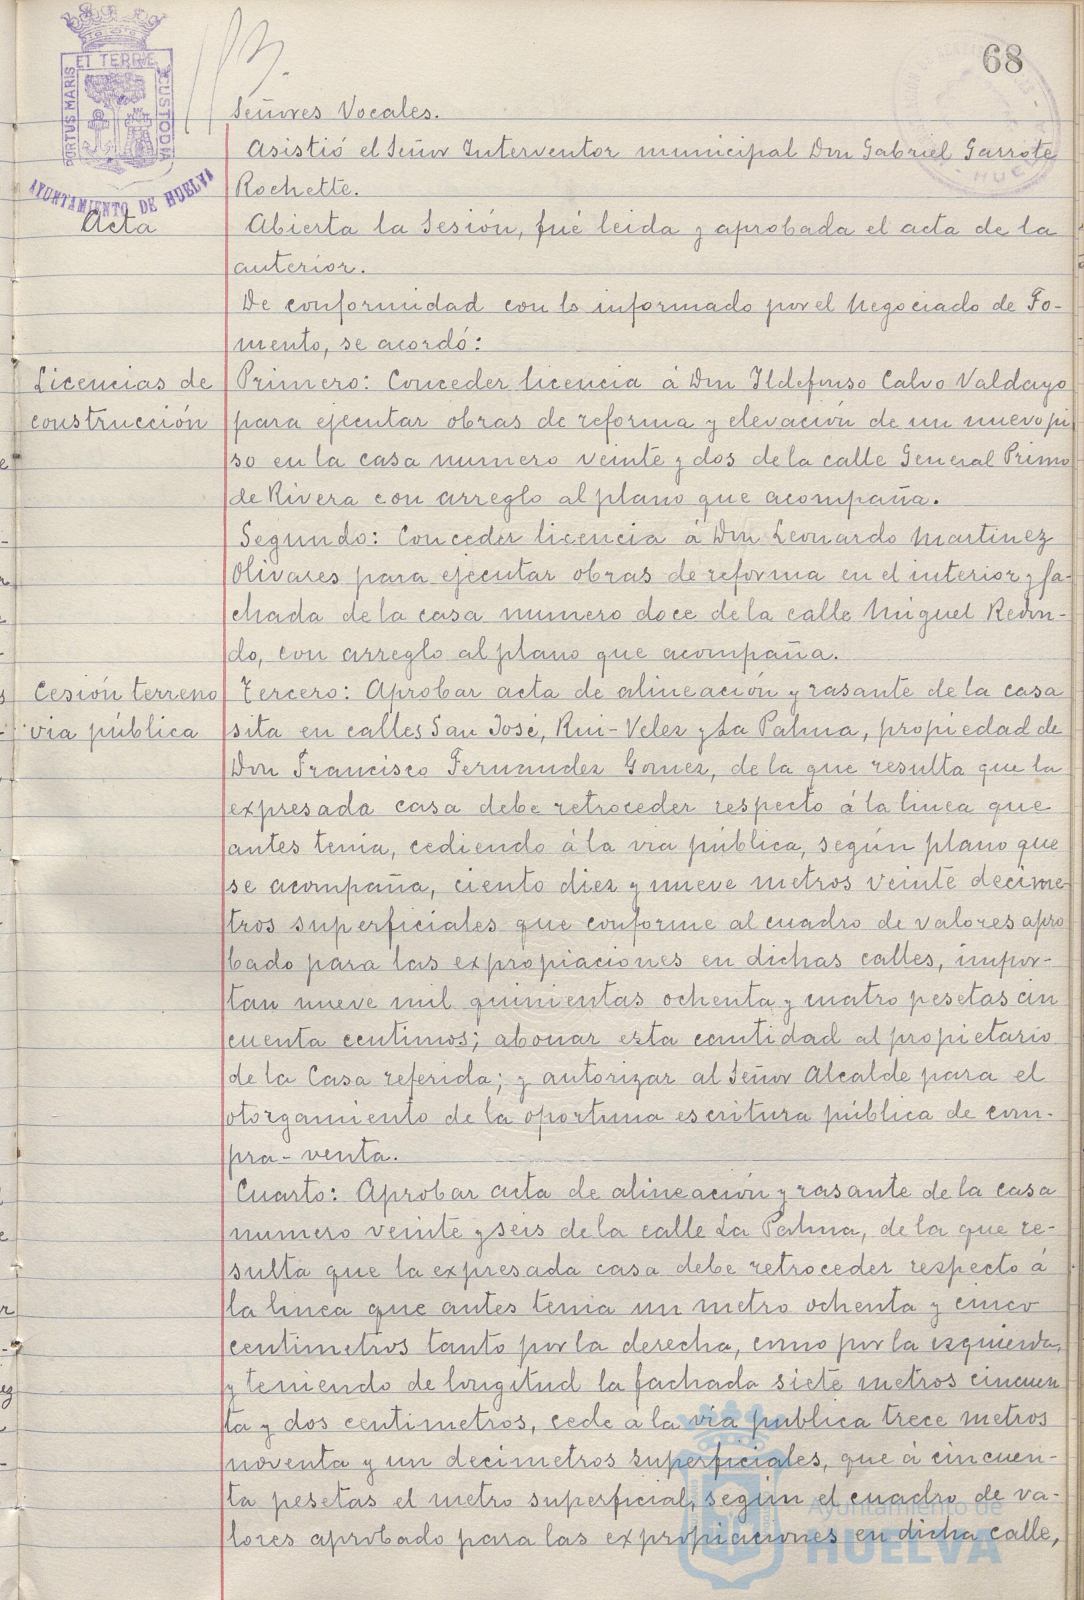 68
PORTUS MARIS ET TERRE CUSTODIA
AYUNTAMIENTO DE HUELVA
HUELVA
Señores Vocales.
Asistió el Señor Interventor municipal Don Gabriel Garrote
Rochette.
Acta
Abierta la Sesión, fué leida y aprobada el acta de la
anterior.
De conformidad con lo informado por el Negociado de Fo-
mento, se acordó:
Licencias de
construcción
Primero: Conceder licencia á Don Ildefonso Calvo Valdayo
para ejecutar obras de reforma y elevación de un nuevo pi
so en la casa numero veinte y dos de la calle General Primo
de Rivera con arreglo al plano que acompaña.
Segundo: Conceder licencia á Don Leonardo Martinez
Olivares para ejecutar obras de reforma en el interior y fa-
chada de la casa numero doce de la calle Miguel Redon-
do, con arreglo al plano que acompaña.
Cesión terreno
via pública
Tercero: Aprobar acta de alineación y rasante de la casa
sita en calles San José, Rui-Velez y La Palma, propiedad de
Don Francisco Fernandez Gomez, de la que resulta que la
expresada casa debe retroceder respecto á la linea que
antes tenia, cediendo á la via pública, según plano que
se acompaña, ciento diez y nueve metros veinte decime-
tros superficiales que conforme al cuadro de valores apro
bado para las expropiaciones en dichas calles, impor-
tan nueve mil quinientas ochenta y cuatro pesetas cin
cuenta centimos; abonar esta cantidad al propietario
de la Casa referida; y autorizar al Señor Alcalde para el
otorgamiento de la oportuna escritura pública de com-
pra-venta.
Cuarto: Aprobar acta de alineación y rasante de la casa
numero veinte y seis de la calle La Palma, de la que re-
sulta que la expresada casa debe retroceder respecto á
la linea que antes tenia un metro ochenta y cinco
centimetros tanto por la derecha, como por la izquierda,
y teniendo de longitud la fachada siete metros cincuen
ta y dos centimetros, cede a la via publica trece metros
noventa y un decimetros superficiales, que á cincuen-
ta pesetas el metro superficial, según el cuadro de va-
lores aprobado para las expropiaciones en dicha calle,
Ayuntamiento de
HUELVA